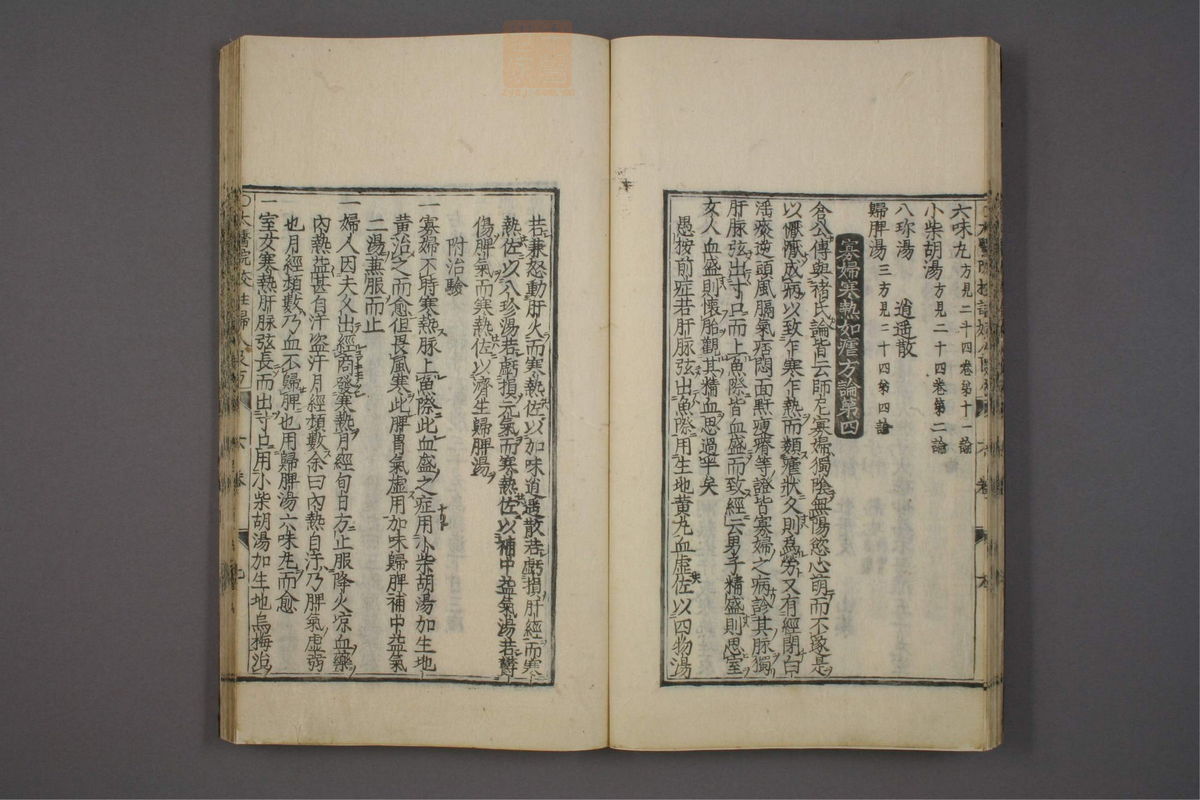 六味丸 方見二十四卷第十一論
小柴胡湯 方見二十四卷第二論
八珍湯 逍遥散
歸脾湯 三方見二十四第四論
寡婦寒熱如瘧方論第四
倉公傳與褚氏論皆云師尼寡婦獨陰無陽慾心萌而不遂是
以懨懨成病以致乍寒乍熱而類瘧狀久則為勞又有經閉白
淫痰逆頭風膈氣痞悶面䵟瘦瘠等證皆寡婦之病診其脉獨
肝脉弦出寸口而上魚際皆血盛而致經云男子精盛則思室
女人血盛則懷胎觀其精血思過半矣
愚按前症若肝脉弦出魚際用生地黄丸血虚佐以四物湯
若兼怒動肝火而寒熱佐以加味逍遥散若虧損肝經而寒
熱佐以八珍湯若虧損元氣而寒熱佐以補中益氣湯若欝
傷脾氣而寒熱佐以濟生歸脾湯
附治驗
一寡婦不時寒熱脉上魚際此血盛之症用小柴胡湯加生地
黄治之而愈但畏風寒此脾胃氣虚用加味歸脾補中益氣
二湯兼服而止
一婦人因夫久出經商發寒熱月經旬日方止服降火凉血藥
内熱益甚自汗盗汗月經頻數余曰内熱自汗乃脾氣虚弱
也月經頻數乃血不歸脾也用歸脾湯六味丸而愈
一室女寒熱肝脉弦長而出寸口用小柴胡湯加生地烏梅治
○太醫院校註婦人良方 六卷 九